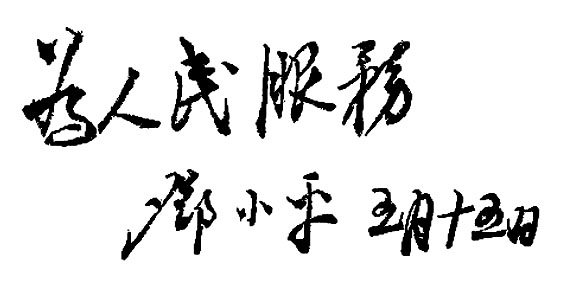 為人民服務
鄧小平 五月十五日